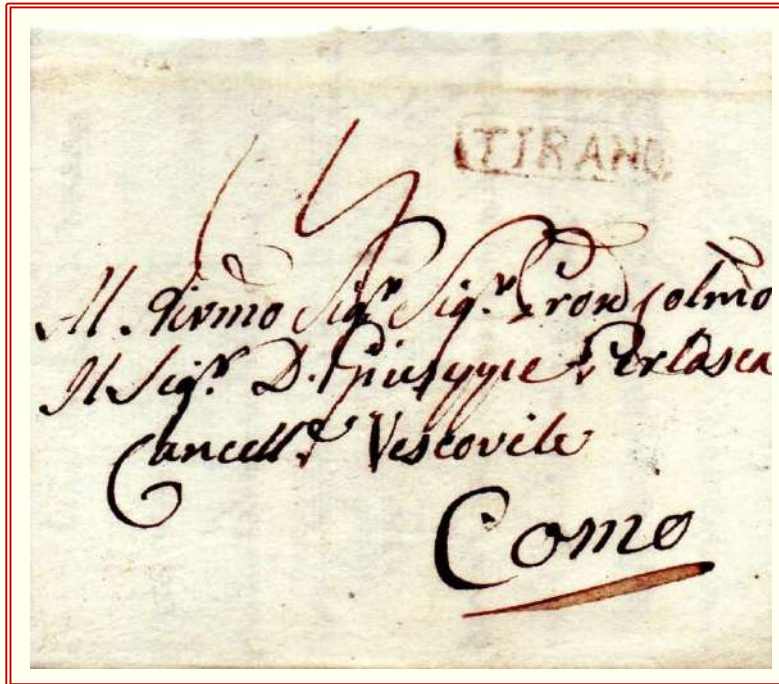 TIRANO
Al Sig.r Sig.r Pron Colmo
Il Sig.r D. Giuseppe Perlasca
Cancell.e Vescovile
Como